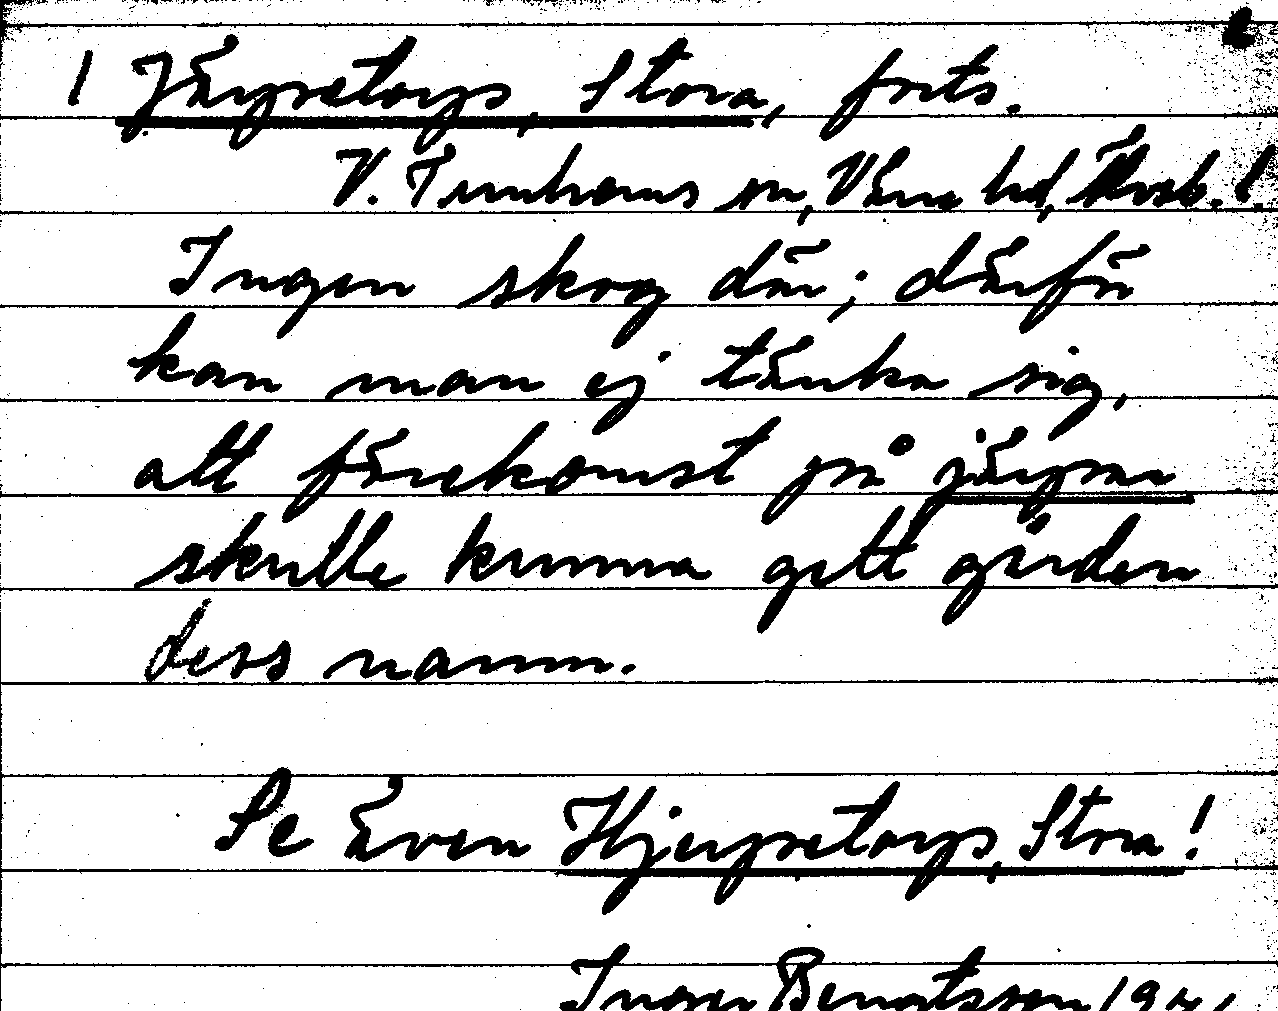 ! Järpretorps, Stora, forts.
V. Tunhems sn, Väne hd, Älvsb. l.
Ingen skog där; därför
kan man ej tänka sig,
att förekomst på järpar
skulle kunna gett gården
dess namn.
Se även Hjerpretorps, Stora!
Inger Bengtsson